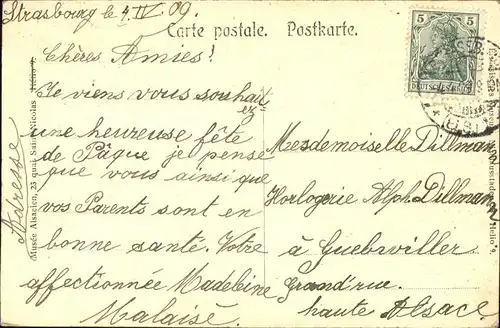 Strasbourg le 4 IV 09.
Carte postale. Postkarte.
Chères Amies!
Je viens vous souhait-
er
une heureuse fête
de Pâque je pense
que vous ainsi que
vos Parents sont en
bonne santé. Votre
affectionnée Madeleine
Malaisé
Mesdemoiselle Dillman
Horlogerie Alph. Dillman
à Guebwiller
Grand'rue.
haute Alsace
Adresse
Musée Alsacien, 23 quai Saint-Nicolas Hélio 9.
5 5
DEUTSCHES REICH